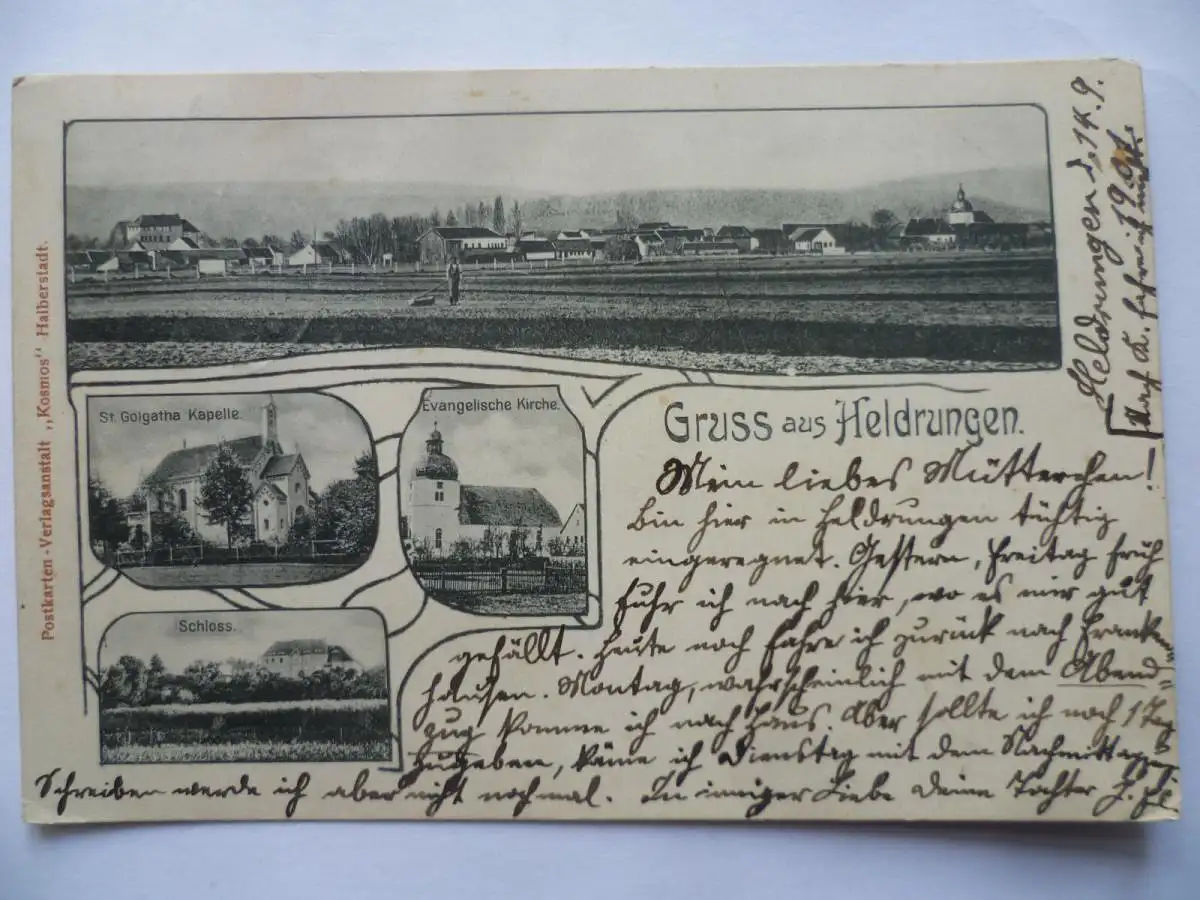 Postkarten-Verlagsanstalt „Kosmos" Halberstadt.
St. Golgatha Kapelle.
Evangelische Kirche.
Schloss.
Gruss aus Heldrungen.
Heldrungen d. 14. 9.
Nach K. fahre ich nicht.
Mein liebes Mütterchen!
Bin hier in Heldrungen tüchtig
eingeregnet. Gestern, Freitag früh
fuhr ich nach hier, wo es mir gut
gefällt. Heute noch fahre ich zurück nach Franken-
hausen. Montag, wahrscheinlich mit dem Abend-
zug komme ich nach Haus. Aber sollte ich noch 1 Tag
zugeben, käme ich Dienstag mit dem Nachmittagszug
Schreiben werde ich aber nicht nochmal. In inniger Liebe Deine Tochter